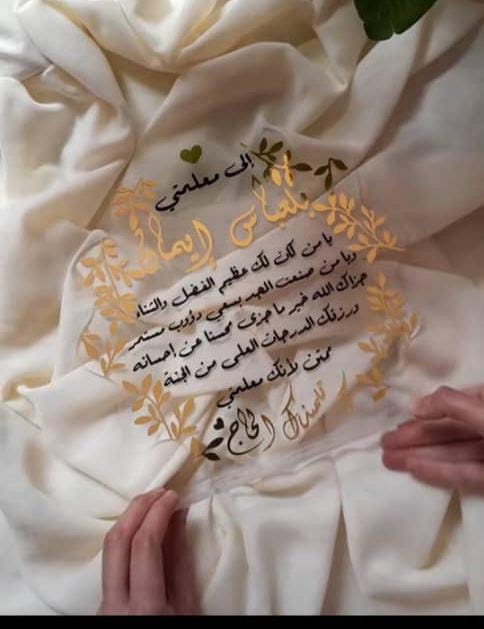 إلى معلمتي
بلقياس إيمان
يا من كان لك عظيم الفضل والثناء
ويا من صنعت المجد بسعي دؤوب مستمر
جزاك الله خير ما جزى محسنا عن إحسانه
ورزقك الدرجات العلى من الجنة
ممتن لأنك معلمتي
تلميذك الحاج